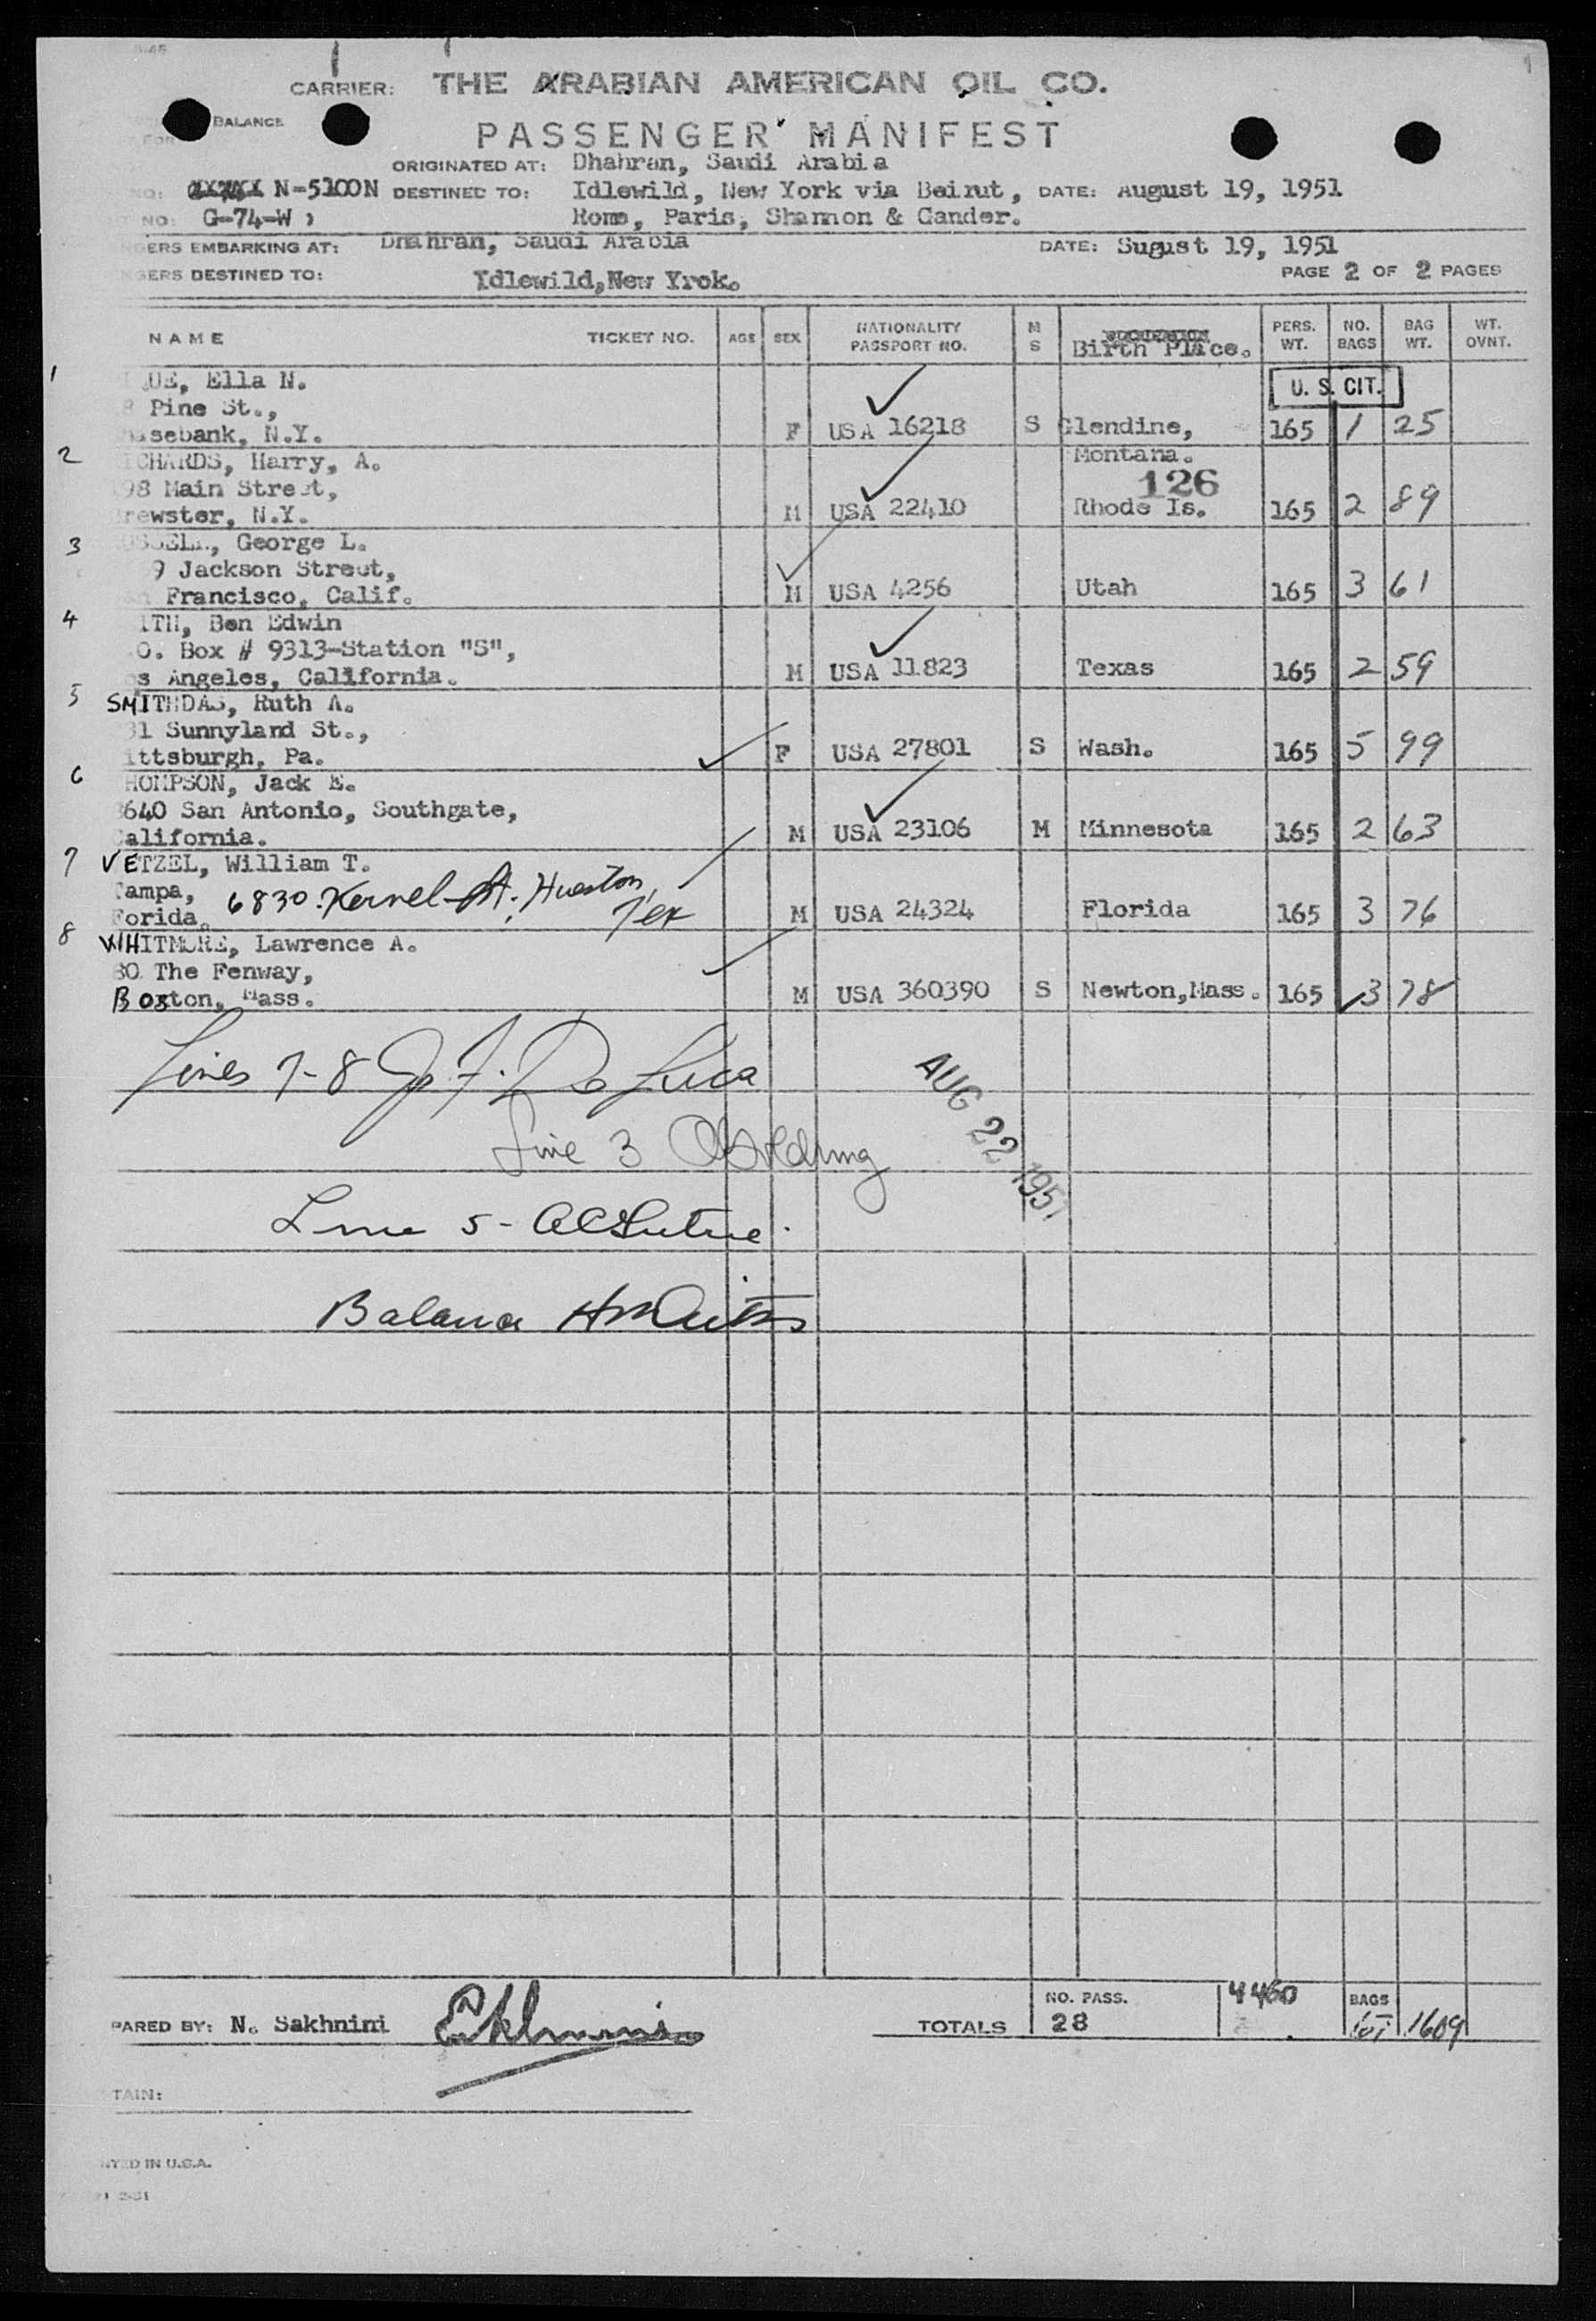 CARRIER: THE ARABIAN AMERICAN OIL CO.
BALANCE
PASSENGER MANIFEST
ORIGINATED AT: Dhahran, Saudi Arabia
NO: N-5100N DESTINED TO: Idlewild, New York via Beirut, DATE: August 19, 1951
NO: G-74-W Rome, Paris, Shannon & Gander.
GERS EMBARKING AT: Dhahran, Saudi Arabia DATE: Sugust 19, 1951
GERS DESTINED TO: Idlewild,New Yrok. PAGE 2 OF 2 PAGES
NAME TICKET NO. AGE SEX NATIONALITY PASSPORT NO. M S Birth Place. PERS. WT. NO. BAGS BAG WT. WT. OVNT.
1 UE, Ella N. U. S. CIT.
8 Pine St.,
sebank, N.Y. F USA 16218 S Glendine, 165 1 25
2 ICHARDS, Harry, A. Montana.
98 Main Street, 126
rewster, N.Y. M USA 22410 Rhode Is. 165 2 89
3 SSELL, George L.
9 Jackson Street,
Francisco, Calif. M USA 4256 Utah 165 3 61
4 ITH, Ben Edwin
O. Box # 9313-Station "S",
s Angeles, California. M USA 11823 Texas 165 2 59
5 SMITHDAS, Ruth A.
31 Sunnyland St.,
ittsburgh, Pa. F USA 27801 S Wash. 165 5 99
6 HOMPSON, Jack E.
640 San Antonio, Southgate,
alifornia. M USA 23106 M Minnesota 165 2 63
7 VETZEL, William T.
Tampa, 6830 Kernel St. Huston,
Forida. Tex M USA 24324 Florida 165 3 76
8 WHITMORE, Lawrence A.
80 The Fenway,
Boston, Mass. M USA 360390 S Newton,Mass. 165 3 78
Lines 7-8 Jo. F. De Luca
AUG 22 1951
Line 3
Line 5-
Balance
PARED BY: N. Sakhnini TOTALS NO. PASS. 28 4460 BAGS 1609
TAIN:
TED IN U.S.A.